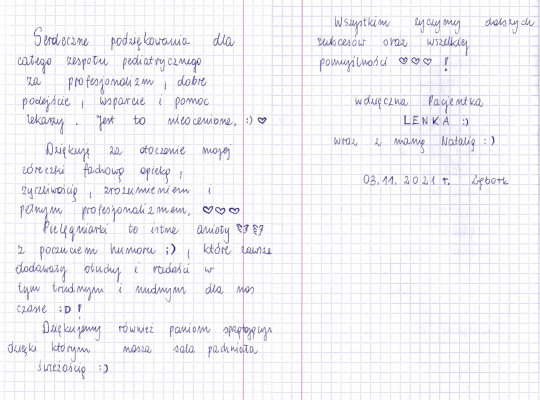 Serdeczne podziękowania dla
całego zespołu pediatrycznego
za profesjonalizm, dobre
podejście, wsparcie i pomoc
lekarzy. Jest to nieocenione. :) ♡
Dziękuję za otoczenie mojej
córeczki fachową opieką,
życzliwością, zrozumieniem i
pełnym profesjonalizmem. ♡♡♡
Pielęgniarki to istne anioły
z poczuciem humoru ;), które zawsze
dodawały otuchy i radości w
tym trudnym i nudnym dla nas
czasie :D !
Dziękujemy również paniom
dzięki którym nasza sala pachniała
świeżością :)
Wszystkim życzymy dalszych
sukcesów oraz wszelkiej
pomyślności ♡♡♡ !
wdzięczna Pacjentka
LENKA :)
wraz z mamą Natalią :)
03.11.2021 r. Lębork